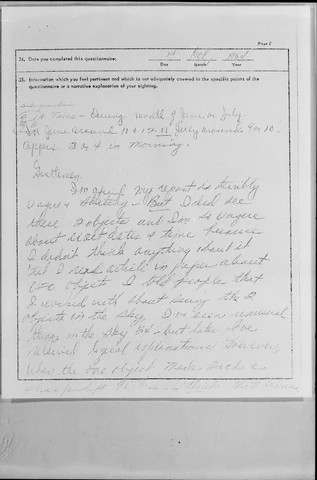 Page 5
24. Date you completed this questionnaire:
1st Oct 1968
Day Month Year
25. Information which you feel pertinent and which is not adequately covered in the specific points of the questionnaire or a narrative explanation of your sighting.
During month of June or July
In June around 11 & 12 or July around 9 or 10.
Approx 3 & 4 in morning.
Gentlemen:
I'm afraid my report is terribly
vague & sketchy - But I did see
these 2 objects and I'm so vague
about exact dates & time because
I didn't think anything about it
'til I read article in paper about
UFO object. I told people that
I worked with about seeing the 2
objects in the sky. I've seen unusual
things in the sky B4 - but later I've
received logical explanations. However,
when the one object made such a